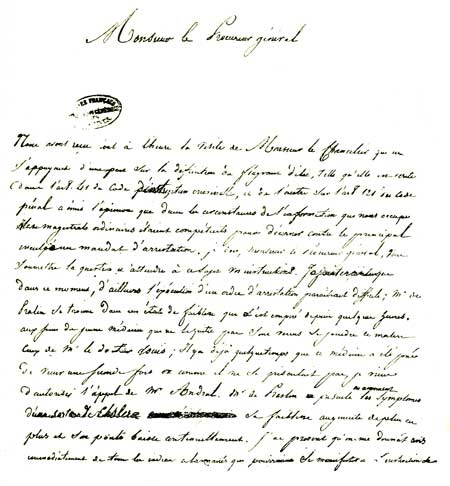 Monsieur le Procureur général
Nous avons reçu tout à l'heure la visite de Monsieur le Chancelier qui en
s'appuyant d'une part sur la définition du flagrant délit, telle qu'elle est écrite
dans l'art 41 du Code d'instruction criminelle, et de l'autre sur l'art 121 du Code
pénal a émis l'opinion que dans les circonstances de l'information qui nous occupe
les magistrats ordinaires étaient compétents pour décerner contre le principal
inculpé un mandat d'arrestation. j'ose, monsieur le Procureur général, vous
soumettre la question et attendre à cet égard vos instructions. J'ajouterai que
dans ce moment, d'ailleurs l'exécution d'un ordre d'arrestation paraîtrait difficile; Mr de
Praslin se trouve dans un état de faiblesse qui s'est empiré depuis quelques heures.
aux soins du jeune médecin qui ne le quitte pas sont venus se joindre ce matin
ceux de Mr le docteur Louis; Il y a déjà quelque temps que ce médecin a été prié
de venir une seconde fois et comme il ne se présentait pas, je viens
d'autoriser l'appel de Mr Andral. Mr de Praslin ensuite les symptômes
du choléra sa faiblesse augmente de plus en
plus et son pouls baisse continuellement. j'ai prescrit qu'on me donnât avis
immédiatement de tous les indices alarmants qui pourraient se manifester